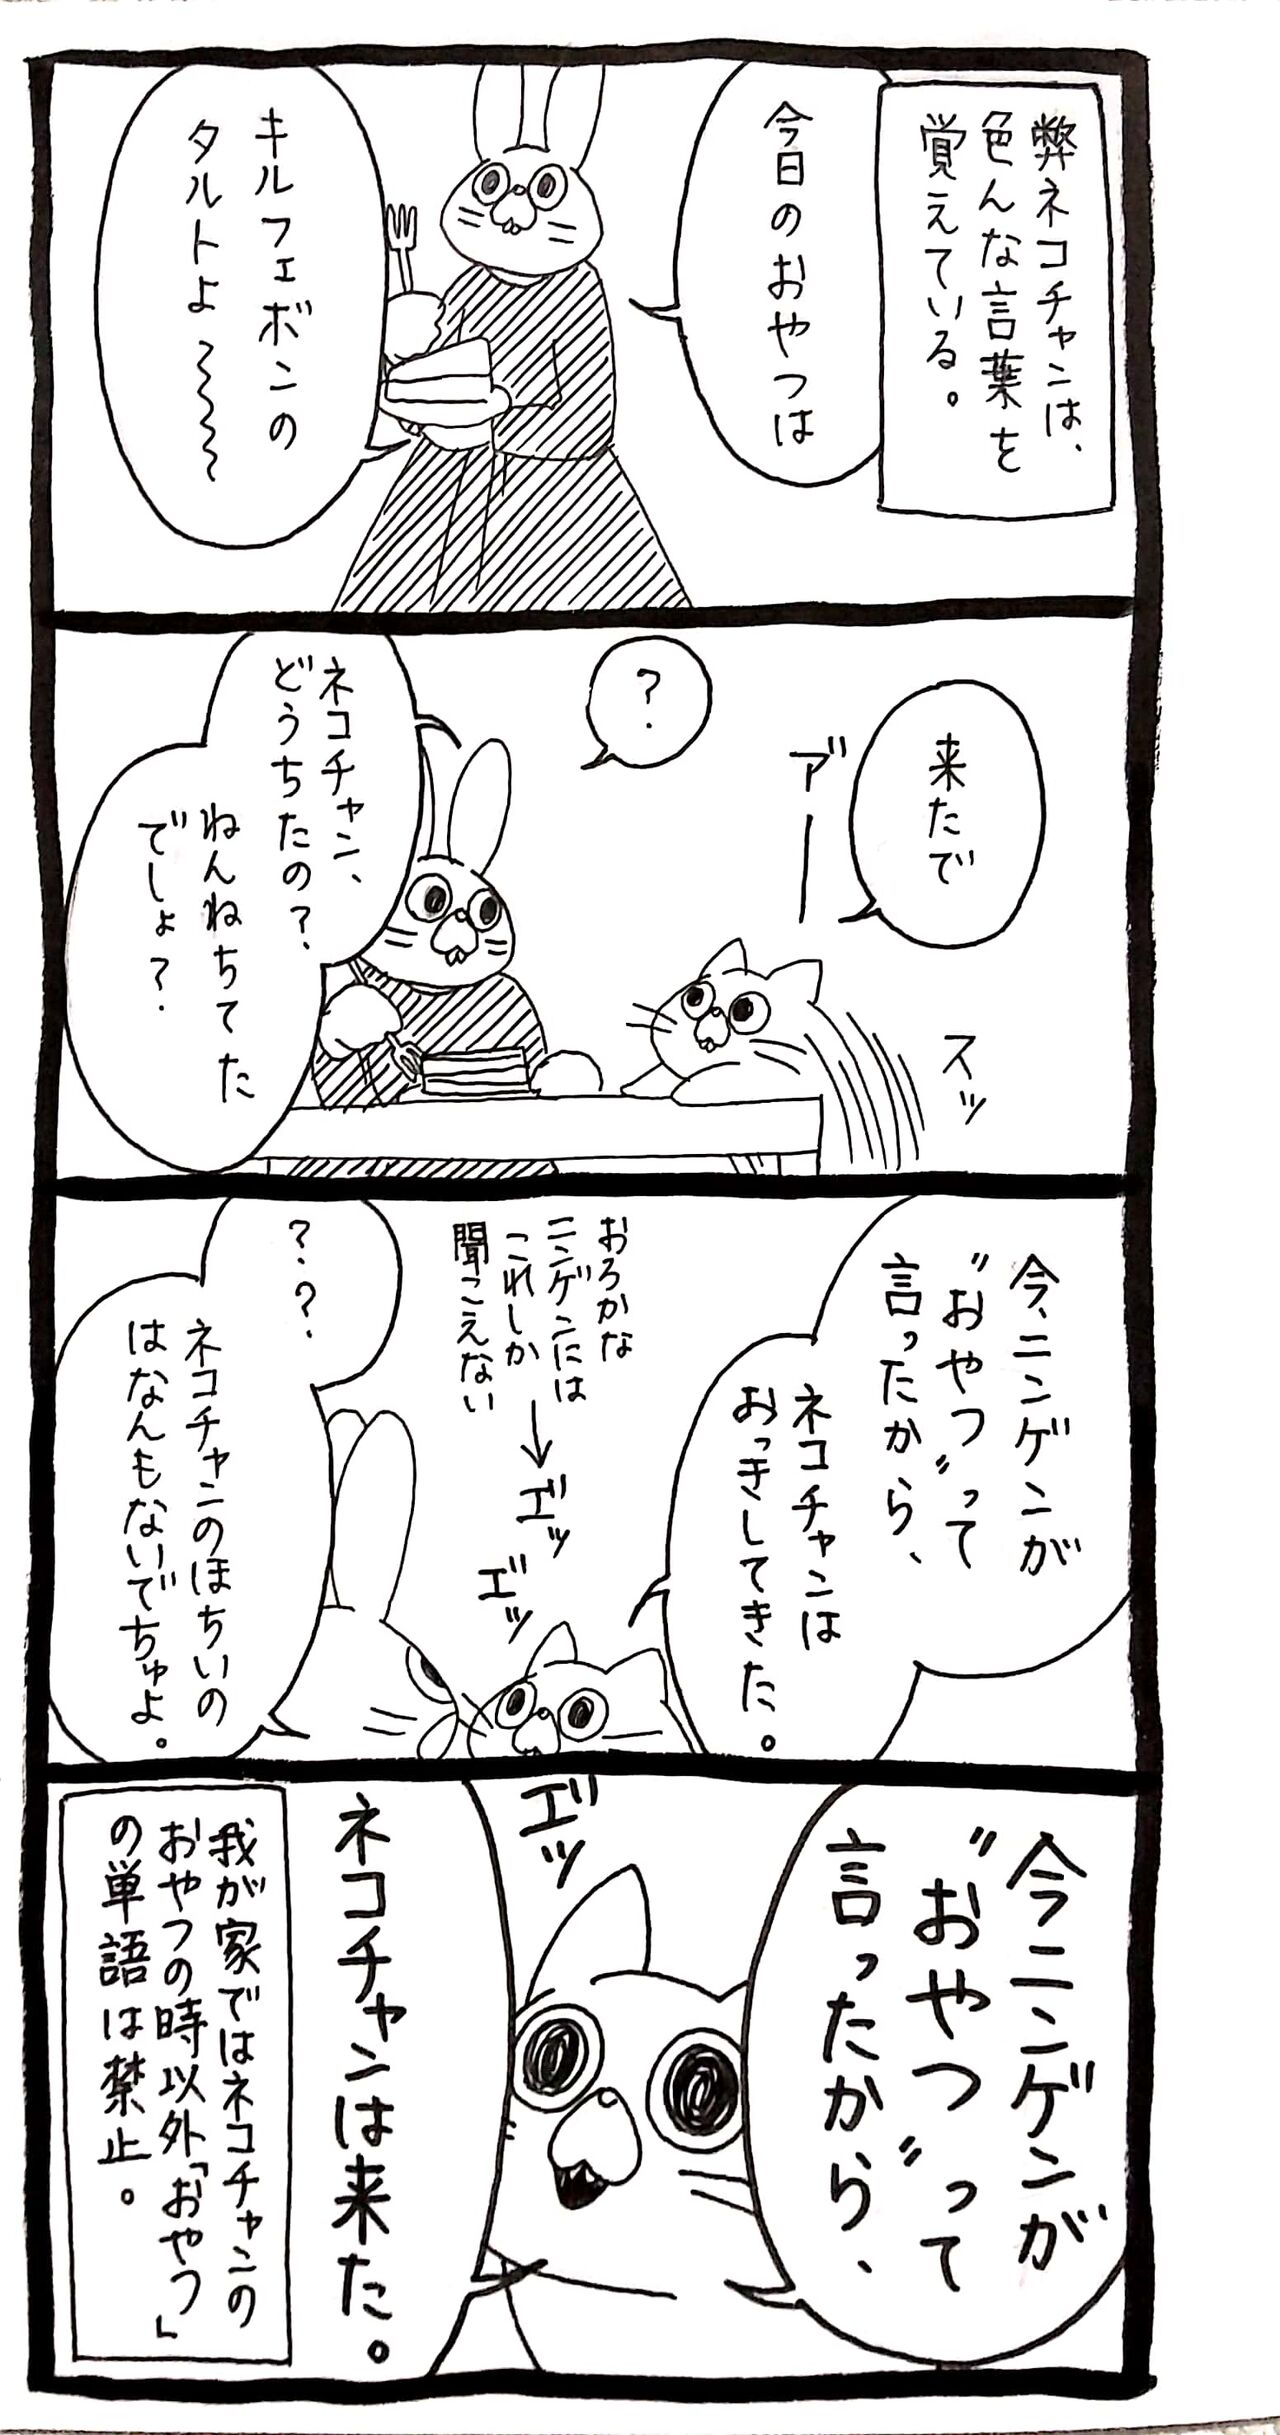 弊ネコチャンは、
色んな言葉を
覚えている。
今日のおやつは
キルフェボンの
タルトよ〜〜〜〜
来たで
アー
スッ
?
ネコチャン、
どうちたの?
ねんねちてた
でしょ?
今、ニンゲンが
“おやつ”って
言ったから、
ネコチャンは
おっきしてきた。
おろかな
ニンゲンには
これしか
聞こえない
→
エッ
エッ
??
ネコチャンのほちいの
はなんもないでちゅよ。
今ニンゲンが
“おやつ”って
言ったから、
エッ
ネコチャンは来た。
我が家ではネコチャンの
おやつの時以外「おやつ」
の単語は禁止。